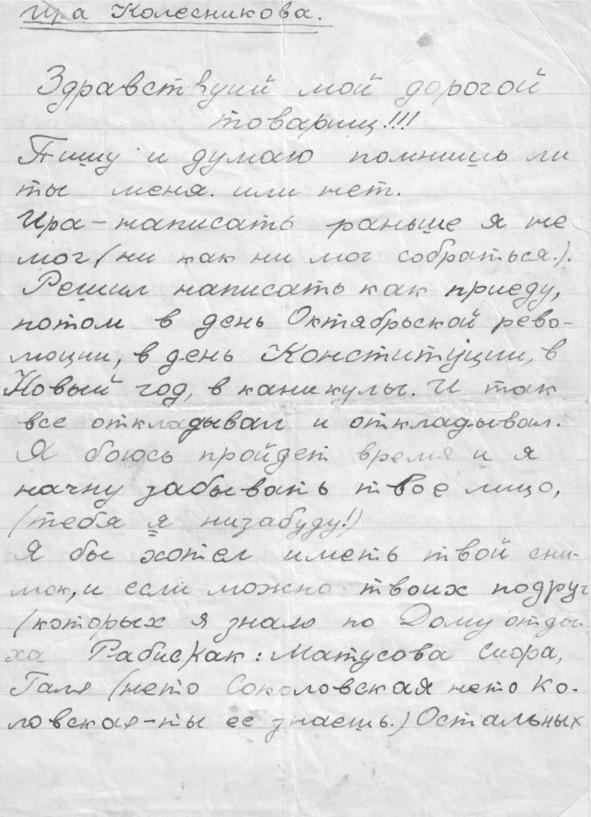 Ира Колесникова.
Здравствуий мой дорогой
товарищ!!!
Пишу и думаю помнишь ли
ты меня. или нет.
Ира – написать раньше я не
мог (ни как ни мог собраться.).
Решил написать как приеду,
потом в день Октябрьской рево-
люции, в день Конституции, в
Новый год, в каникулы. И так
все откладывал и откладывал.
Я боюсь пройдет время и я
начну забывать твое лицо,
(тебя я низабуду!)
Я бы хотел иметь твой сни-
мок, и если можно твоих подруг
(которых я знаю по Дому отды-
ха Рабис) как: Матусова
Галя (нето Соколовская нето Ко-
ловская – ты ее знаешь.) Остальных